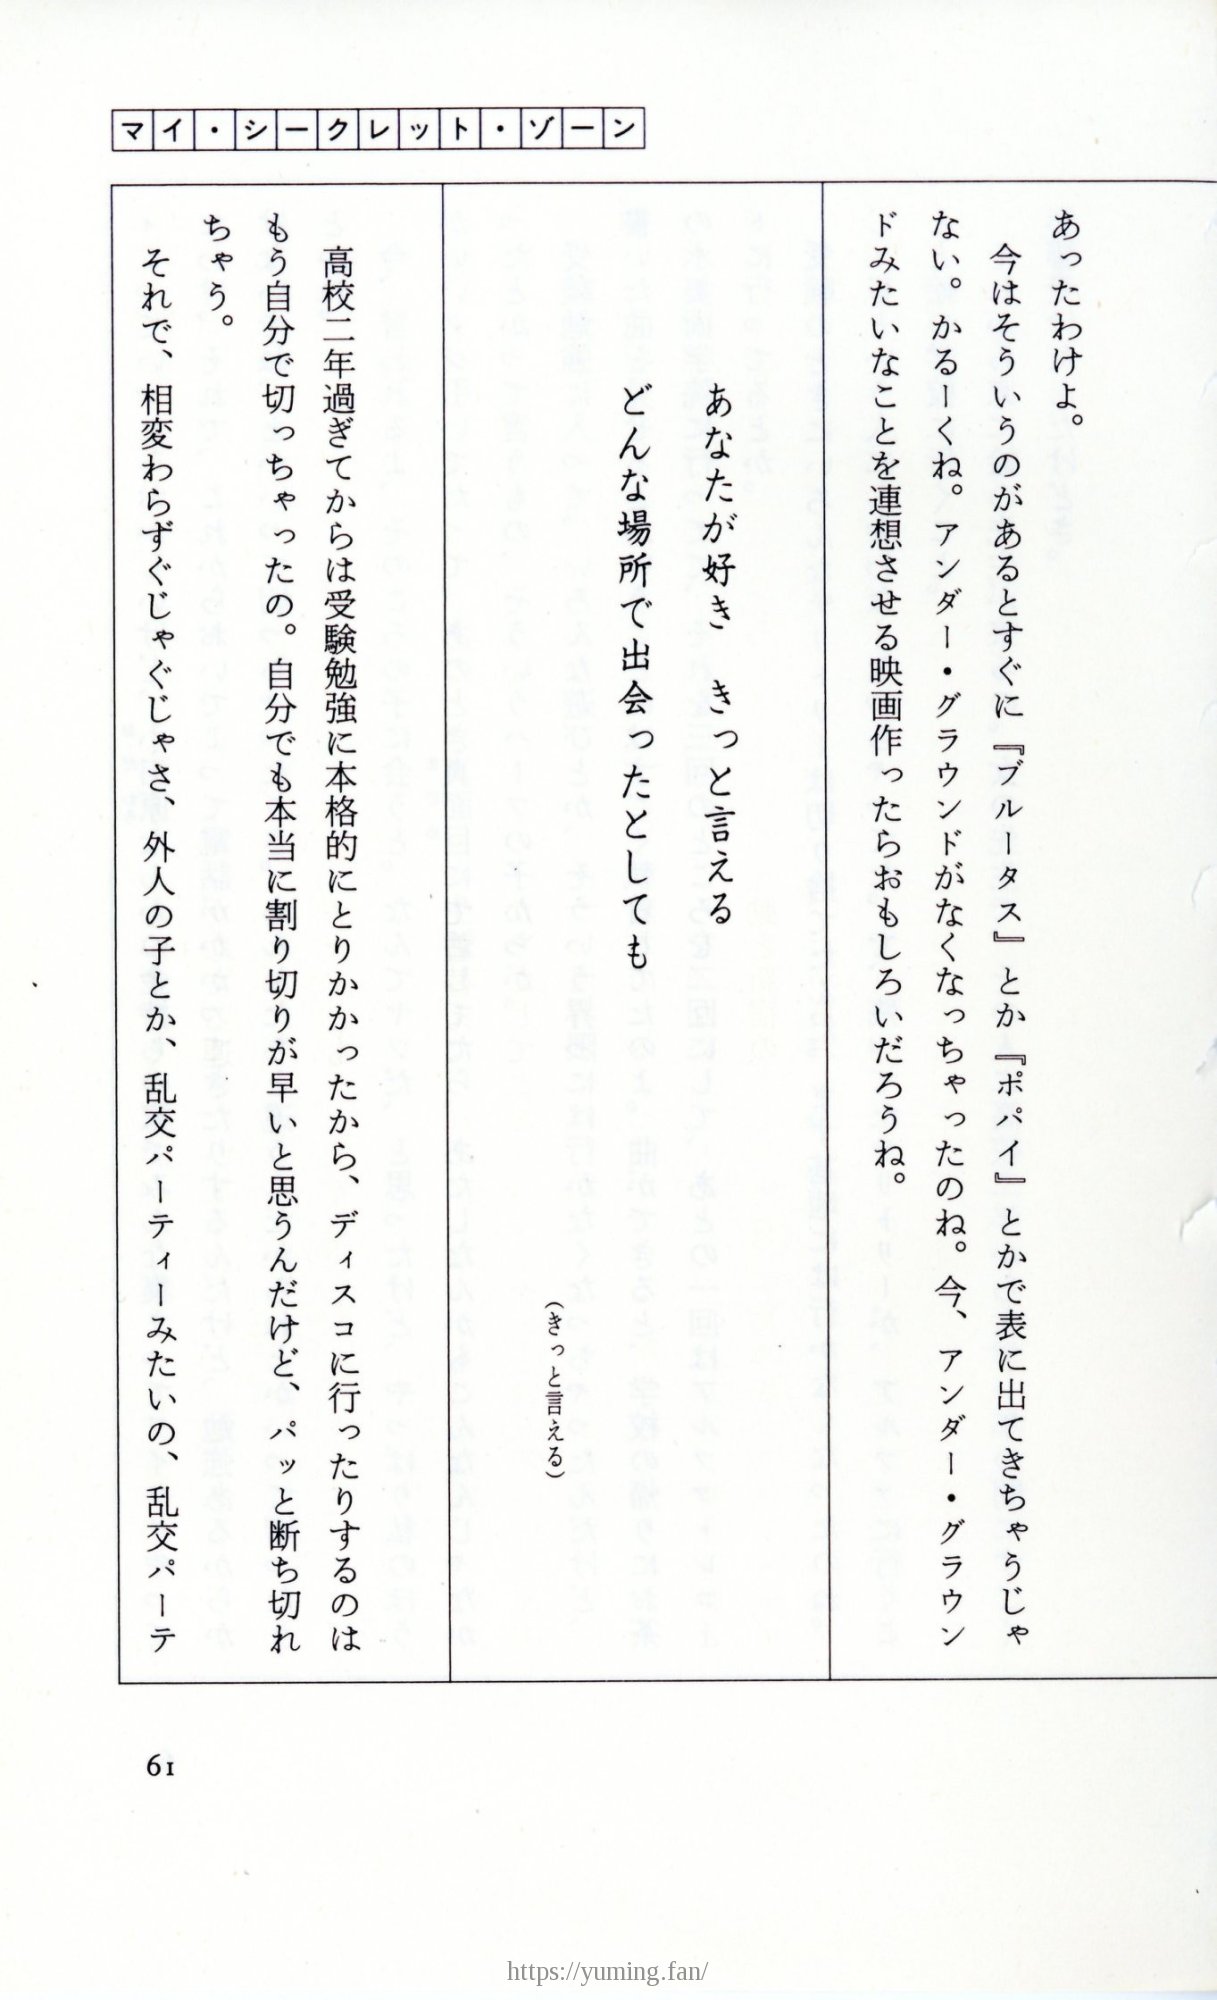 マイ・シークレット・ゾーン
あったわけよ。
今はそういうのがあるとすぐに『ブルータス』とか『ポパイ』とかで表に出てきちゃうじゃ
ない。かるーくね。アンダー・グラウンドがなくなっちゃったのね。今、アンダー・グラウン
ドみたいなことを連想させる映画作ったらおもしろいだろうね。
あなたが好き　きっと言える
どんな場所で出会ったとしても
（きっと言える）
高校二年過ぎてからは受験勉強に本格的にとりかかったから、ディスコに行ったりするのは
もう自分で切っちゃったの。自分でも本当に割り切りが早いと思うんだけど、パッと断ち切れ
ちゃう。
それで、相変わらずぐじゃぐじゃさ、外人の子とか、乱交パーティーみたいの、乱交パーテ
61
https://yuming.fan/